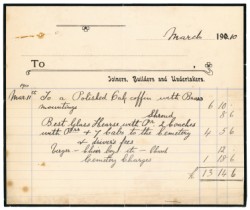 March 1900.10
To
Joiners, Builders and Undertakers.
1900
Mar 11th To a Polished Oak coffin with Brass
mountings 6 10 -
Shroud 8 6
Best Glass Hearse with Pr & Coaches
with Prs & 7 Cabs to the Cemetery 4 5 6
& drivers fees
Cemetery Charges 1 18 6
13 14 6